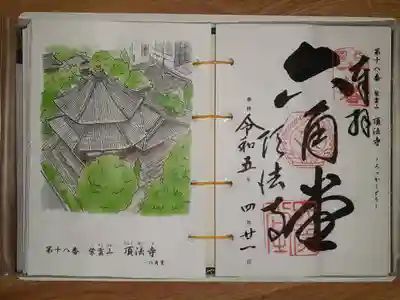 第十八番 紫雲山 頂法寺
六角堂
第十八番 紫雲山 頂法寺
奉拝
六角堂
頂法寺
令和五年 四月廿一日